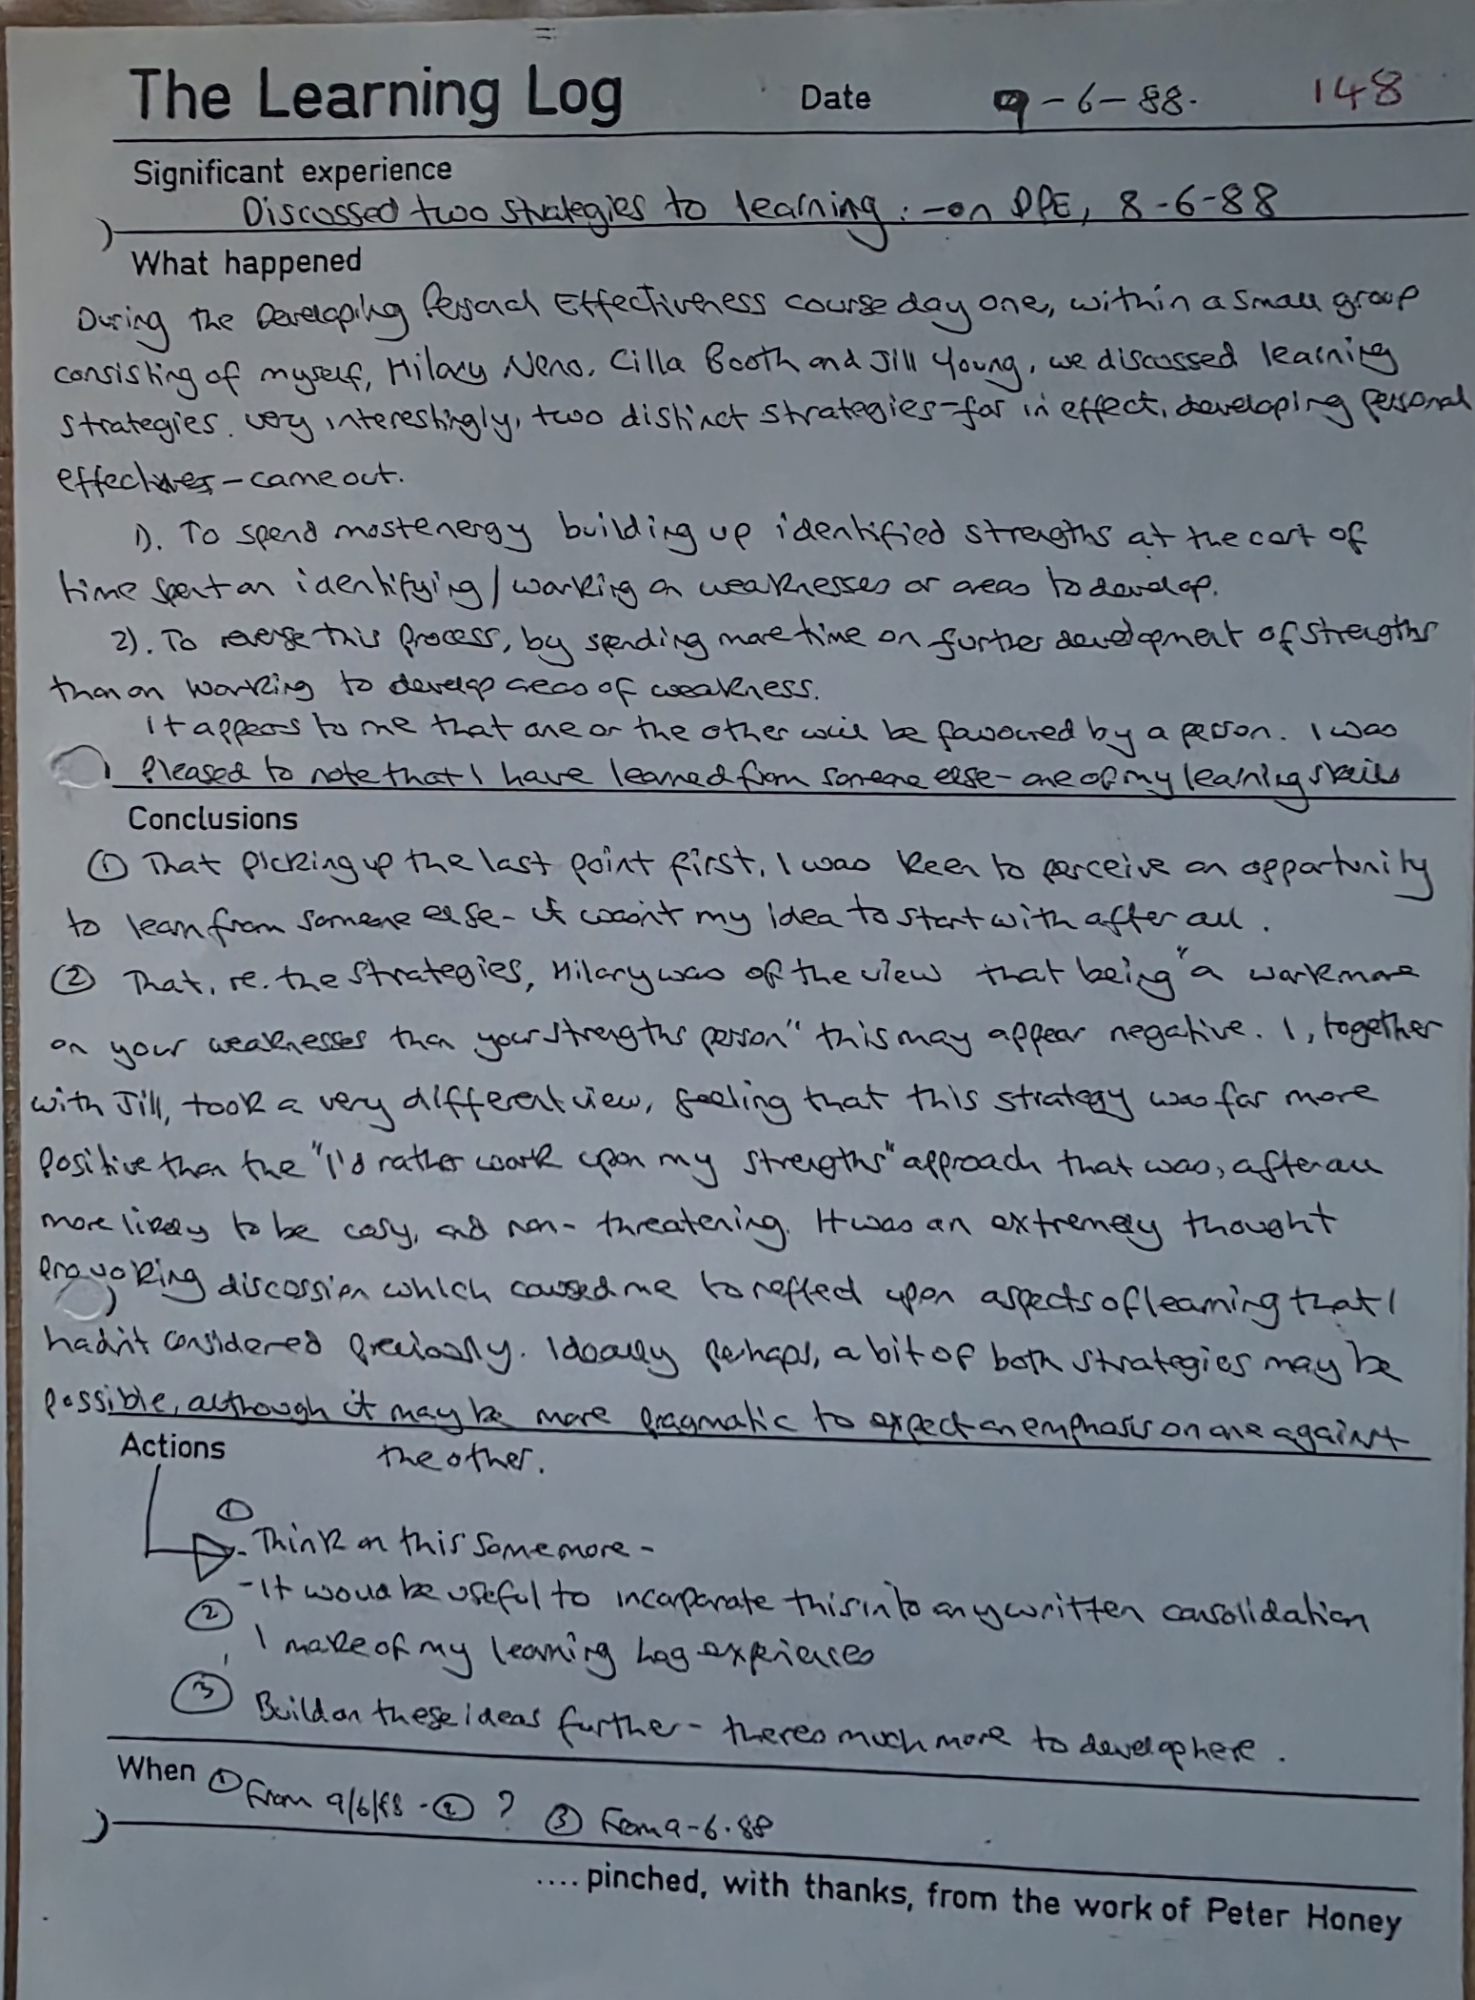 The Learning Log Date 9-6-88. 148
Significant experience
Discussed two strategies to learning: - on DPE, 8-6-88
What happened
During the Developing Personal Effectiveness course day one, within a small group
consisting of myself, Hilary Neno, Cilla Booth and Jill Young, we discussed learning
strategies. very interestingly, two distinct strategies - for in effect, developing personal
effectiveness - came out.
1). To spend most energy building up identified strengths at the cost of
time spent on identifying / working on weaknesses or areas to develop.
2). To reverse this process, by spending more time on further development of strengths
than on working to develop areas of weakness.
It appears to me that one or the other will be favoured by a person. I was
pleased to note that I have learned from someone else - one of my learning skills
Conclusions
① That picking up the last point first, I was keen to perceive an opportunity
to learn from someone else - it wasn't my idea to start with after all.
② That, re. the strategies, Hilary was of the view that being "a work more
on your weaknesses than your strengths person" this may appear negative. I, together
with Jill, took a very different view, feeling that this strategy was far more
positive than the "I'd rather work upon my strengths" approach that was, after all
more likely to be easy, and non-threatening. It was an extremely thought
provoking discussion which caused me to reflect upon aspects of learning that I
hadn't considered previously. Ideally perhaps, a bit of both strategies may be
possible, although it may be more pragmatic to expect an emphasis on one against
the other.
Actions
① Think on this some more -
② - It would be useful to incorporate this into any written consolidation
I make of my learning log experiences
③ Build on these ideas further - theres much more to develop here.
When ① From 9/6/88 - ② ? ③ From 9-6-88
.... pinched, with thanks, from the work of Peter Honey